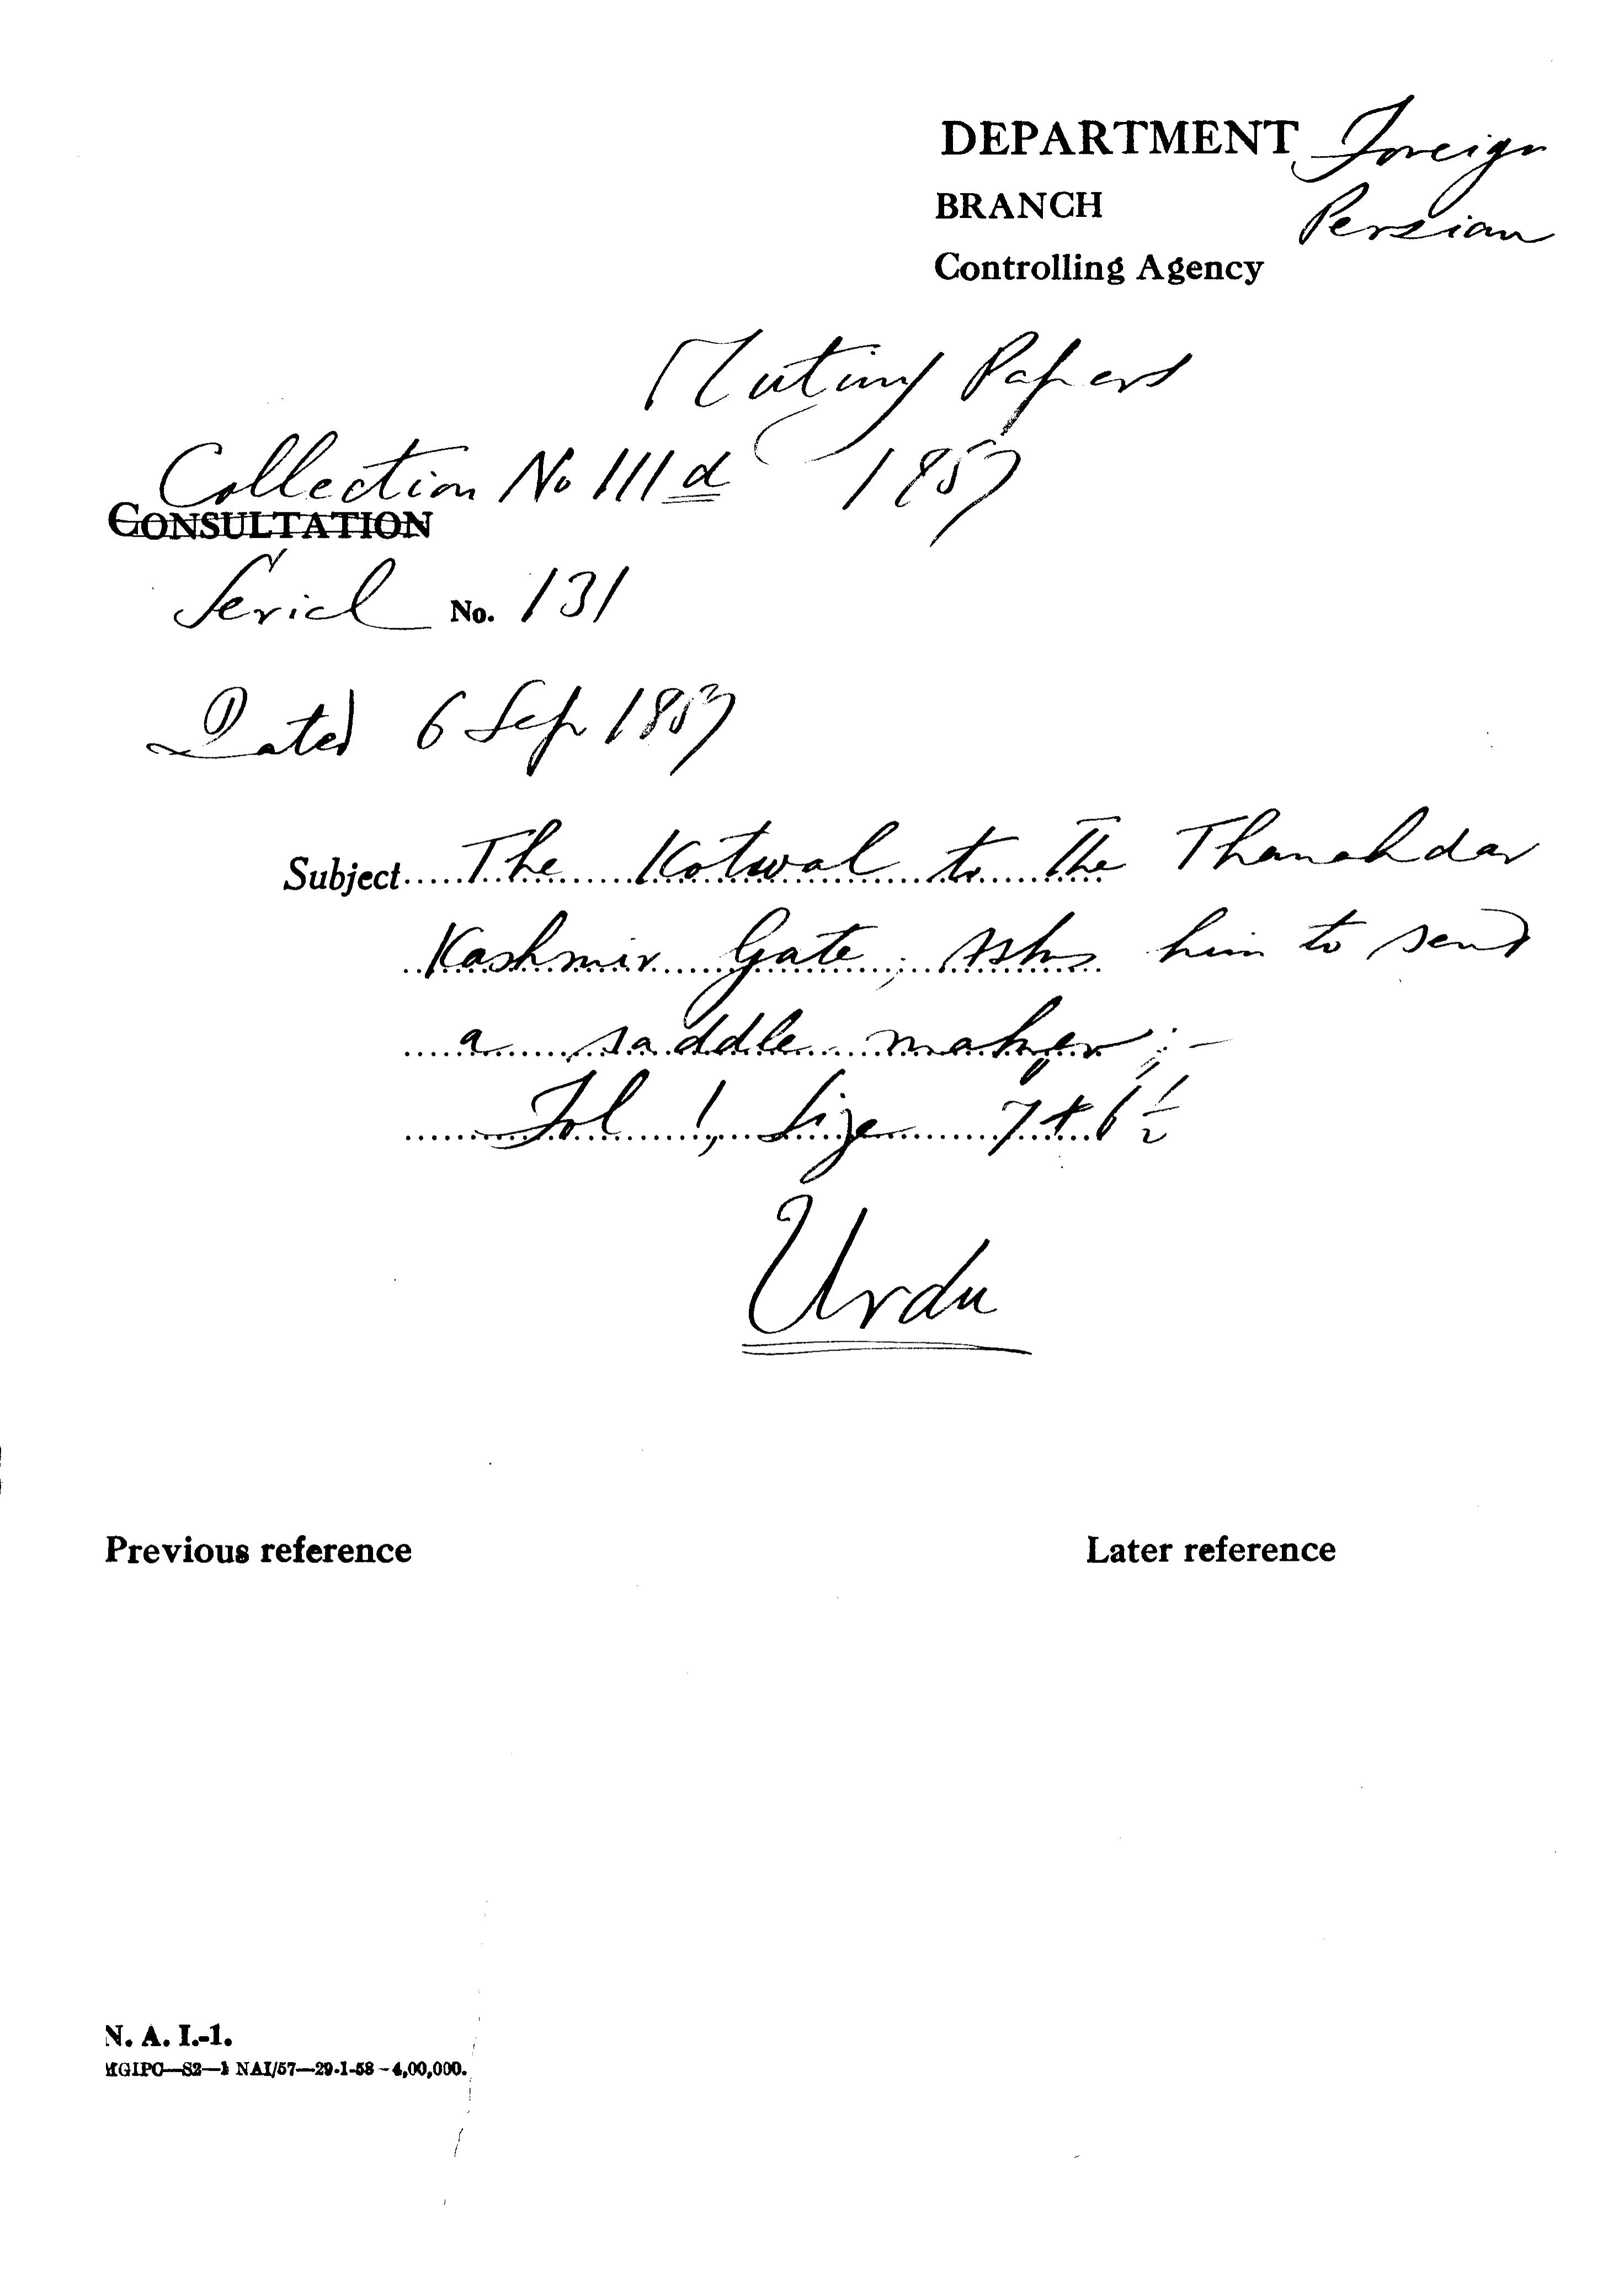 DEPARTMENT Foreign
BRANCH Persian
Controlling Agency
Mutiny Papers
Collection No 111 d 1857
CONSULTATION
Serial No. 131
Dated 6 Sep 1857
Subject The Kotwal to the Thanahdar
Kashmir Gate; Asks him to send
a saddle maker;-
Fol 1, Size 7 x 6 1/2
Urdu
Previous reference Later reference
N. A. I.-1.
MGIPC—S2—1 NAI/57—29-1-58—4,00,000.